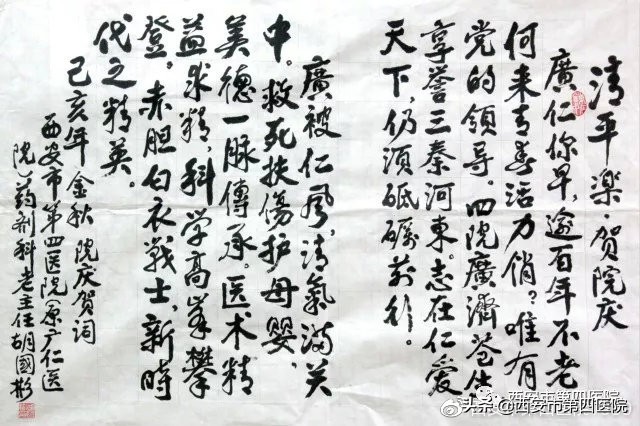 清平楽·贺院庆
廣仁你早,逾百年不老
何来青春活力俏?唯有
党的领导。四院廣濟苍生
享誉三秦河東。志在仁爱
天下,仍须砥礪前行。
廣被仁风,清氣满关
中。救死扶傷护母婴,
美德一脉傳承。医术精
益求精,科学高峯攀
登。赤胆白衣战士,新時
代之精英。
己亥年金秋 院庆贺词
西安市第四医院(原广仁医
院)药剂科老主任胡國彬
西安市第四医院
头条@西安市第四医院